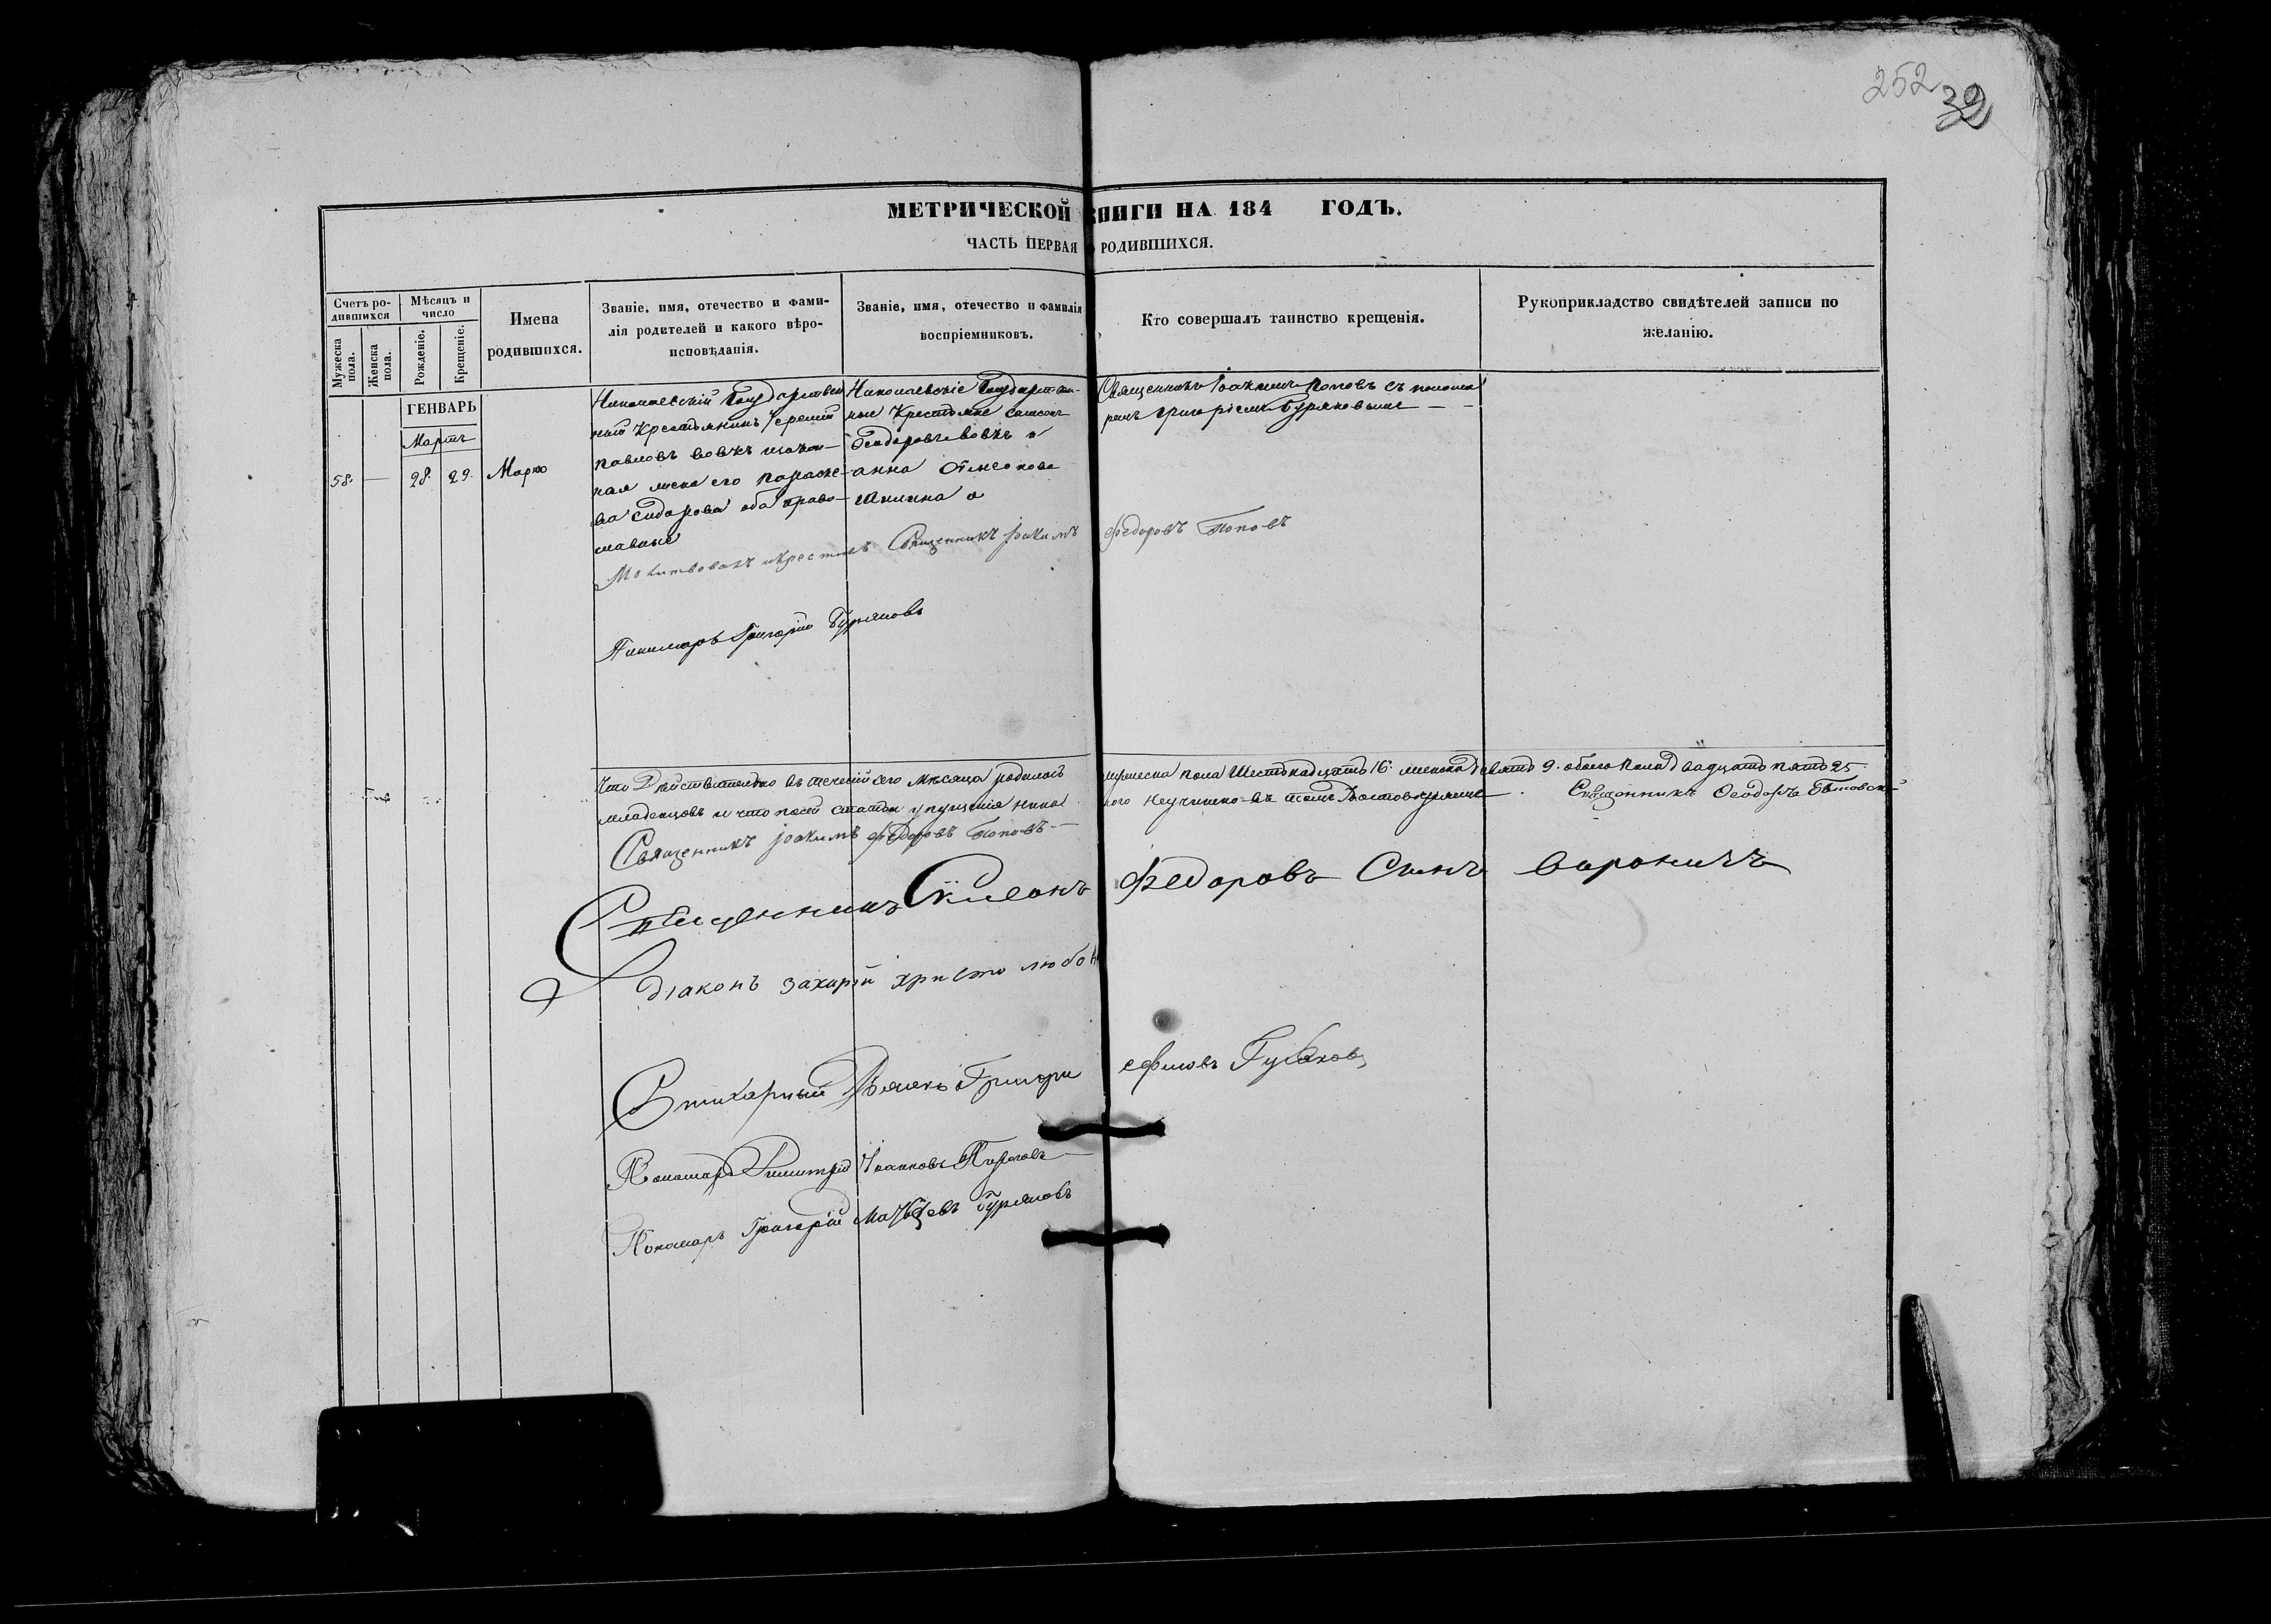 252
39
МЕТРИЧЕСКОЙ КНИГИ НА 184 ГОДЪ.
ЧАСТЬ ПЕРВАЯ О РОДИВШИХСЯ.
Счетъ родившихся
Мужеска пола.
Женска пола.
Мѣсяцъ и число
Рожденіе.
Крещеніе.
Имена родившихся.
Званіе, имя, отечество и фами-
лія родителей и какого вѣро-
исповѣданія.
Званіе, имя, отечество и фамилія
воспріемниковъ.
Кто совершалъ таинство крещенія.
Рукоприкладство свидѣтелей записи по
желанію.
ГЕНВАРЬ
Мартъ
58. — 28. 29. Марко
Николаевскій Государствен
ный Крестьянинъ
Павловъ Вовкъ и закон-
ная жена его Параске-
ва Сидорова оба право-
славные
Николаевскіе Государствен-
ные Крестьяне
Феодоровъ Вовкъ и
Анна
Священникъ Іоакимъ Поповъ съ понома
ремъ Григоріемъ Буряковымъ
Молитвовалъ и крестилъ Священникъ Іоакимъ Федоровъ Поповъ
Пономарь Григорій Буряковъ
Что Действительно въ теченіи сего месяца родилось мужеска пола Шестнадцать 16. женска девять 9. обоего пола Двадцать пять 25
младенцовъ и что посей статьи упущенія ника кого неучинено въ томъ Свидетельствуемъ. Священникъ Феодоръ
Священникъ Іоакимъ Федоровъ Поповъ
Священникъ Симеонъ Федоровъ Сынъ
Діаконъ Захарій Христолюбов
Стихарный Дьячекъ Григори Ефимовъ Гусаков
Пономарь Димитрій Іоанновъ
Пономарь Григорій Матвеевъ Буряковъ